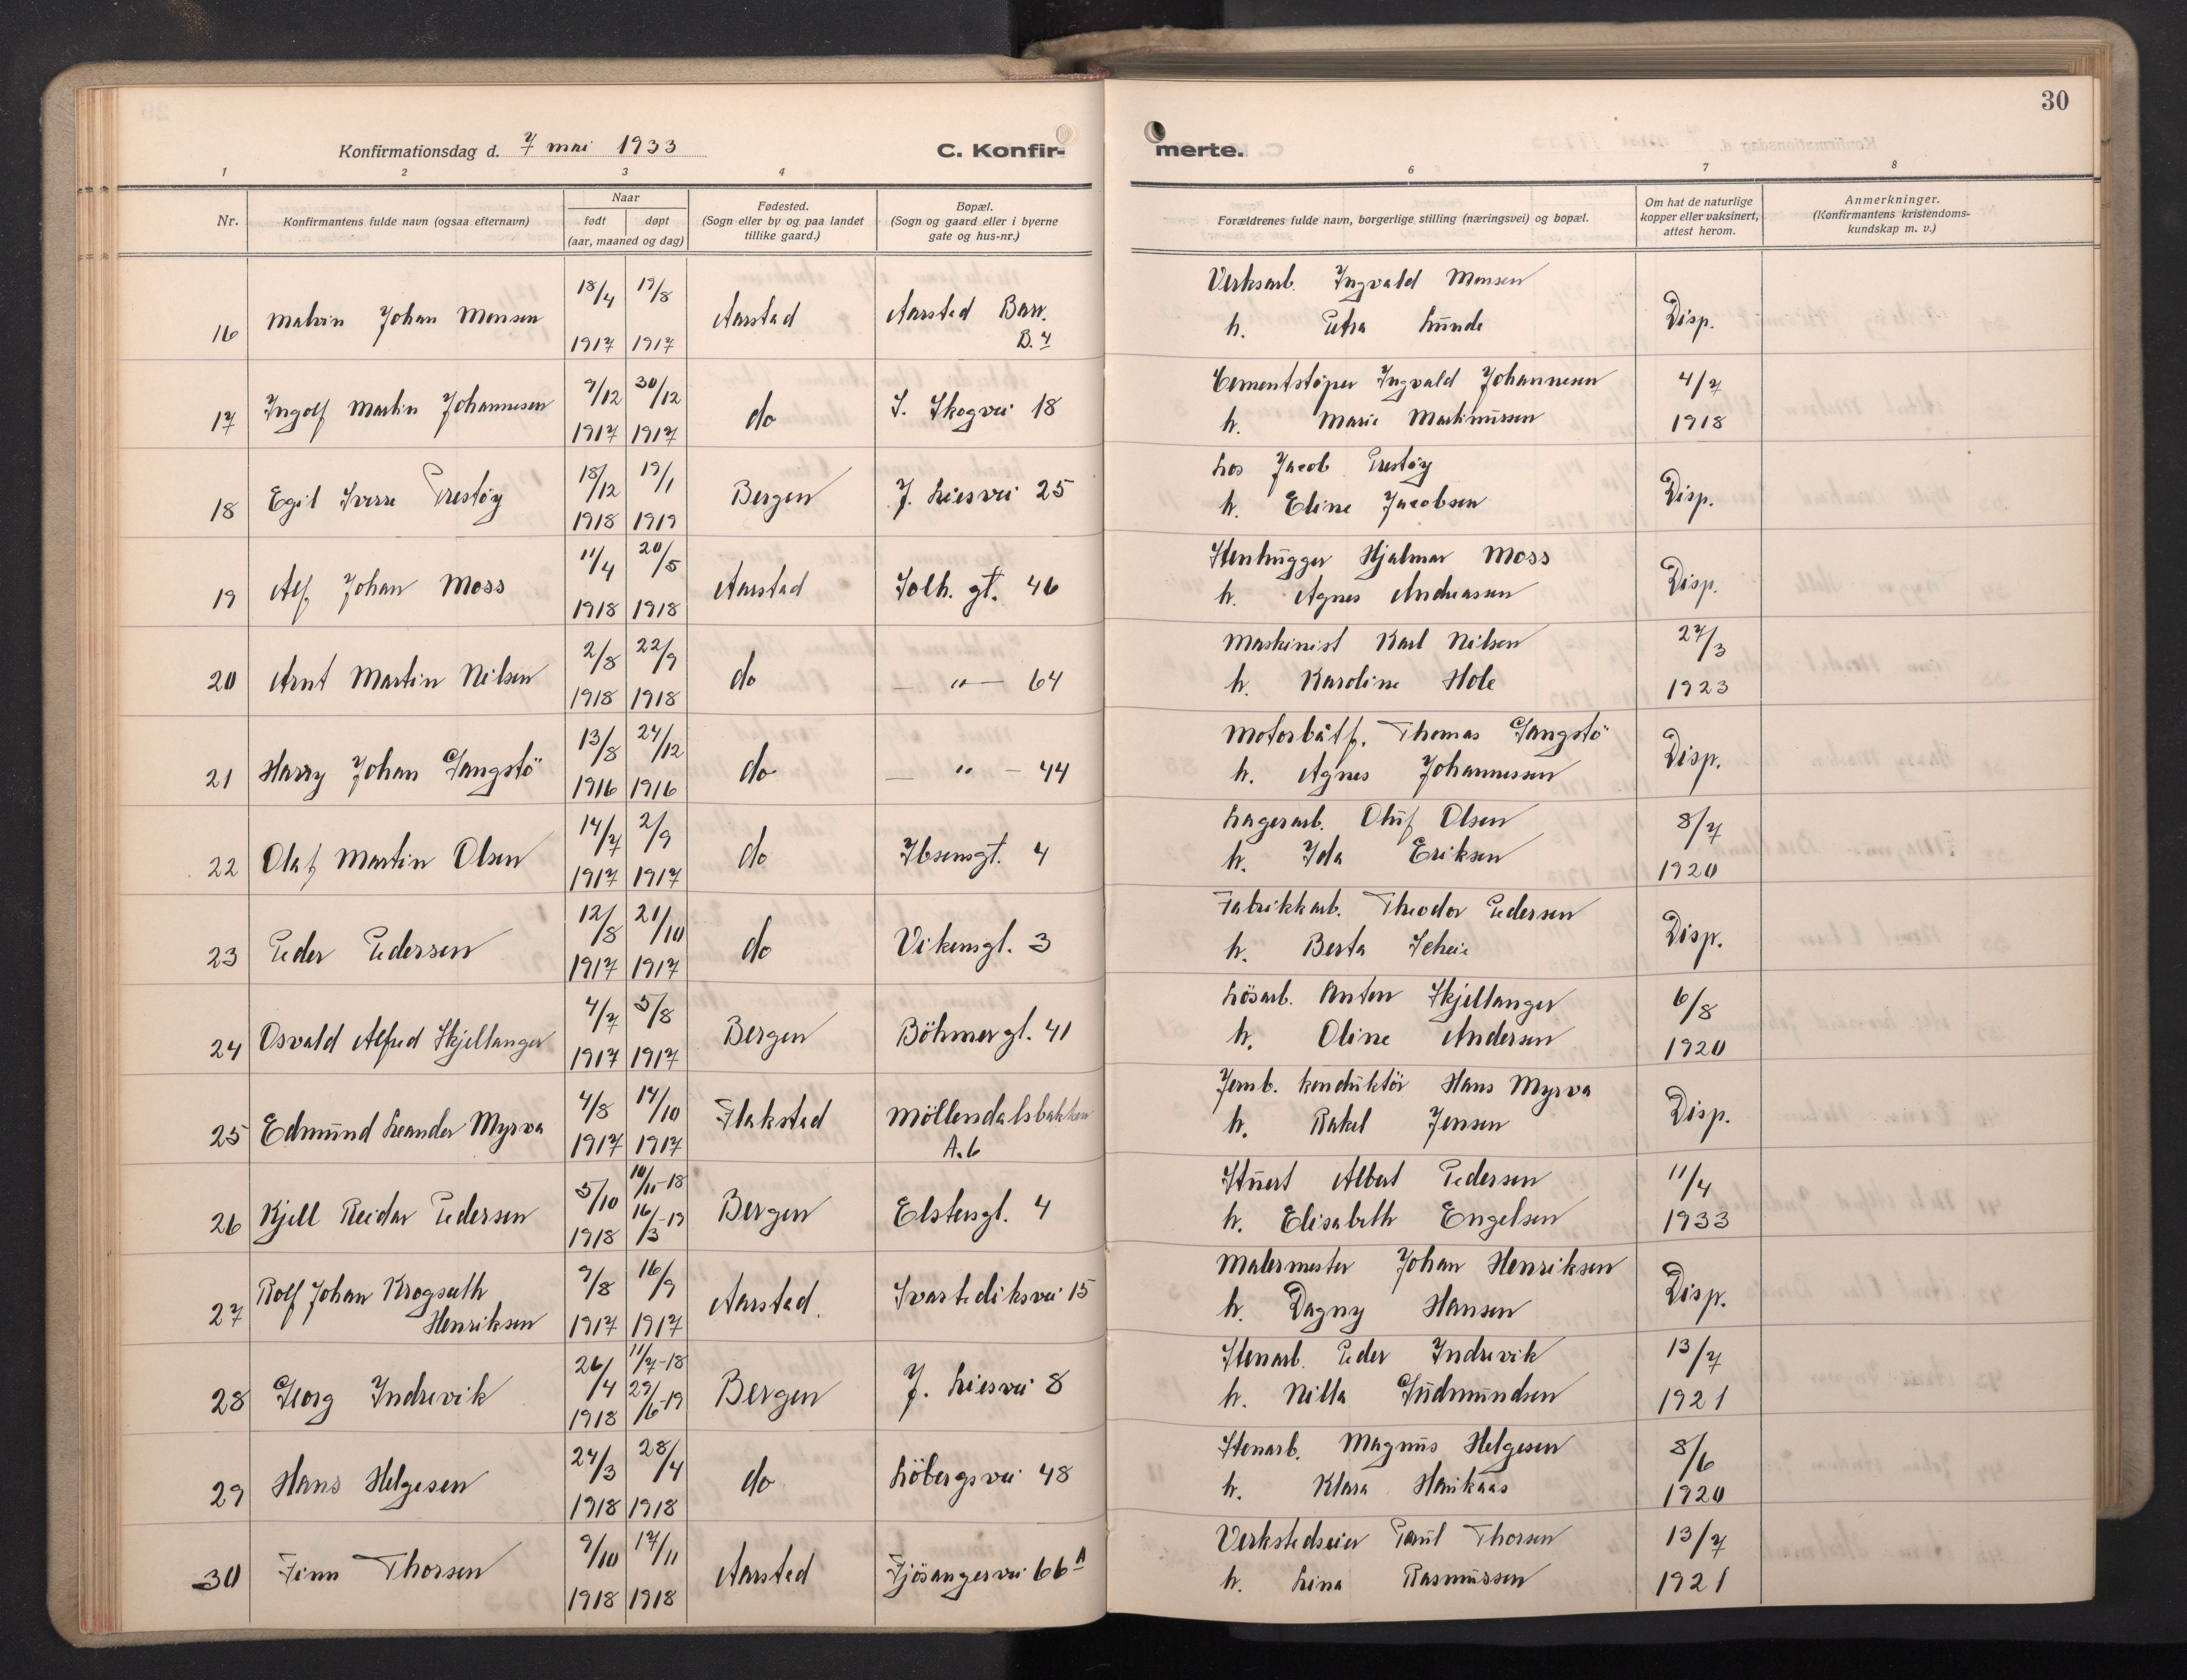 30
Konfirmationsdag d. 7 mai 1933
C. Konfirmerte.
1 2 3 4 6 7 8
Nr.
Konfirmantens fulde navn (ogsaa efternavn)
Naar
født døpt
(aar, maaned og dag)
Fødested.
(Sogn eller by og paa landet
tillike gaard.)
Bopæl.
(Sogn og gaard eller i byerne
gate og hus-nr.)
Forældrenes fulde navn, borgerlige stilling (næringsvei) og bopæl.
Om hat de naturlige
kopper eller vaksinert,
attest herom.
Anmerkninger.
(Konfirmantens kristendoms-
kundskap m. v.)
16 Malvin Johan Monsen 18/4 1917 19/8 1917 Aarstad Aarstad Barr. B. 7
Verksarb. Ingvald Monsen
h. Petra Lunde
Disp.
17 Ingolf Martin Johannesen 9/12 1917 30/12 1917 do S. Skogvei 18
Cementstøper Ingvald Johannesen
h. Marie Martinussen
4/7 1918
18 Egil Sverre Prestøy 18/12 1918 19/1 1919 Bergen J. Liesvei 25
Los Jacob Prestøy
h. Eline Jacobsen
Disp.
19 Alf Johan Moss 11/4 1918 20/5 1918 Aarstad Solh. gt. 46
Stenhugger Hjalmar Moss
h. Agnes Andreassen
Disp.
20 Arnt Martin Nilsen 2/8 1918 22/9 1918 do — " — 64
Maskinist Karl Nilsen
h. Karoline Hole
27/3 1923
21 Harry Johan Gangstö 13/8 1916 24/12 1916 do — " — 44
Motorbåtf. Thomas Gangstö
h. Agnes Johannessen
Disp.
22 Olaf Martin Olsen 14/7 1917 2/9 1917 do Ibsensgt. 4
Lagerarb. Oluf Olsen
h. Ida Eriksen
8/7 1920
23 Peder Pedersen 12/8 1917 21/10 1917 do Vikensgt. 3
Fabrikkarb. Theodor Pedersen
h. Berta Scheie
Disp.
24 Osvald Alfred Skjellanger 4/7 1917 5/8 1917 Bergen Böhmergt. 41
Lösarb. Anton Skjellanger
h. Oline Andersen
6/8 1920
25 Edmund Leander Myrva 4/8 1917 14/10 1917 Flakstad Möllendalsbakken A. 6
Jernb. konduktör Hans Myrva
h. Rakel Jensen
Disp.
26 Kjell Reidar Pedersen 5/10 1918 10/11-18 16/3-19 Bergen Elstersgt. 4
Stuert Albert Pedersen
h. Elisabeth Engelsen
11/4 1933
27 Rolf Johan Krogseth
Henriksen 9/8 1917 16/9 1917 Aarstad. Svartediksvei 15
Malermester Johan Henriksen
h. Dagny Hansen
Disp.
28 Georg Indrevik 26/4 1918 11/7-18 29/6-19 Bergen J. Liesvei 8
Stenarb. Peder Indrevik
h. Nilla Gudmundsen
13/7 1921
29 Hans Helgesen 24/3 1918 28/4 1918 do Löbergsvei 48
Stenarb. Magnus Helgesen
h. Klara Haukaas
8/6 1920
30 Finn Thorsen 9/10 1918 17/11 1918 Aarstad Fjösangervei 66 A
Verkstedseier Paul Thorsen
h. Lina Rasmussen
13/7 1921